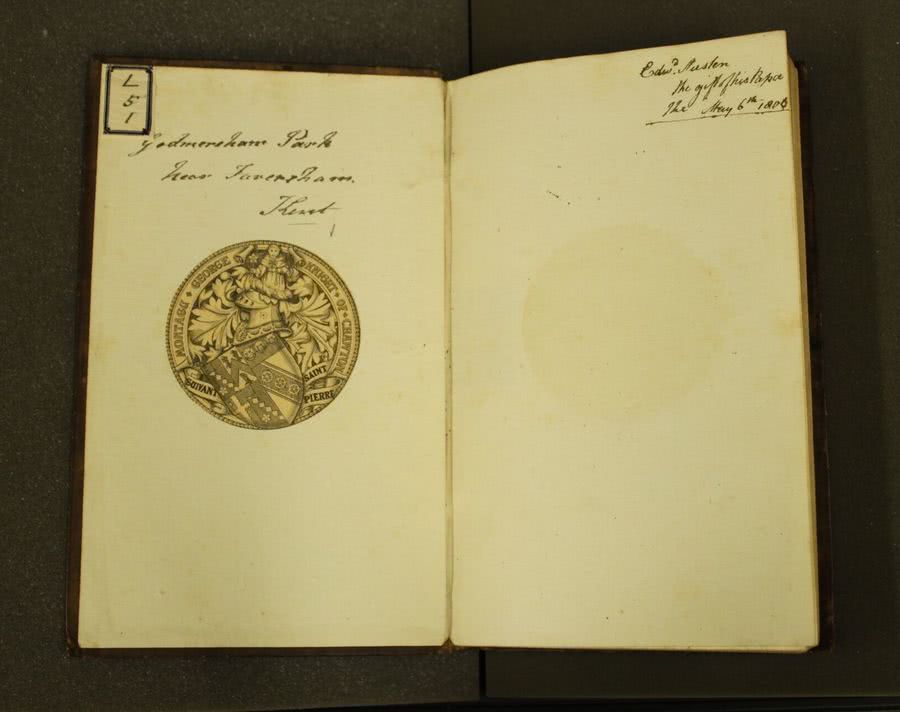 L
5
1
Godmersham Park
Near Faversham.
Kent
MONTAGU • GEORGE • KNIGHT • OF • CHAWTON
SUIVANT
SAINT
PIERRE
Edwd. Austen
The gift of his Papa
The May 6th